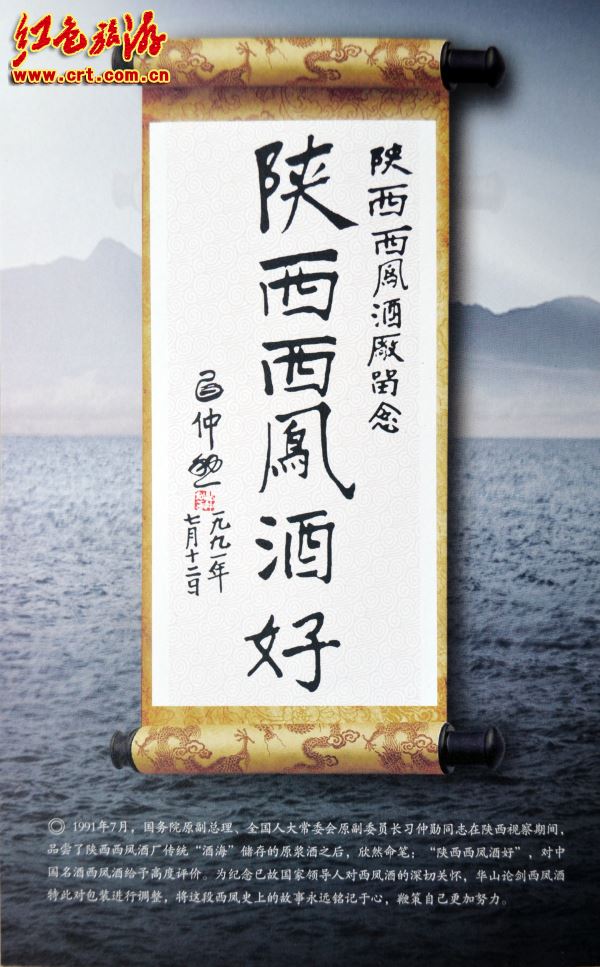 红色旅游
www.crt.com.cn
陕西西鳳酒廠留念
陕西西鳳酒好
习仲勋
一九九一年
七月十二日
◎ 1991年7月，国务院原副总理、全国人大常委会原副委员长习仲勋同志在陕西视察期间，
品尝了陕西西凤酒厂传统“酒海”储存的原浆酒之后，欣然命笔：“陕西西凤酒好”，对中
国名酒西凤酒给予高度评价。为纪念已故国家领导人对西凤酒的深切关怀，华山论剑西凤酒
特此对包装进行调整，将这段西凤史上的故事永远铭记于心，鞭策自己更加努力。